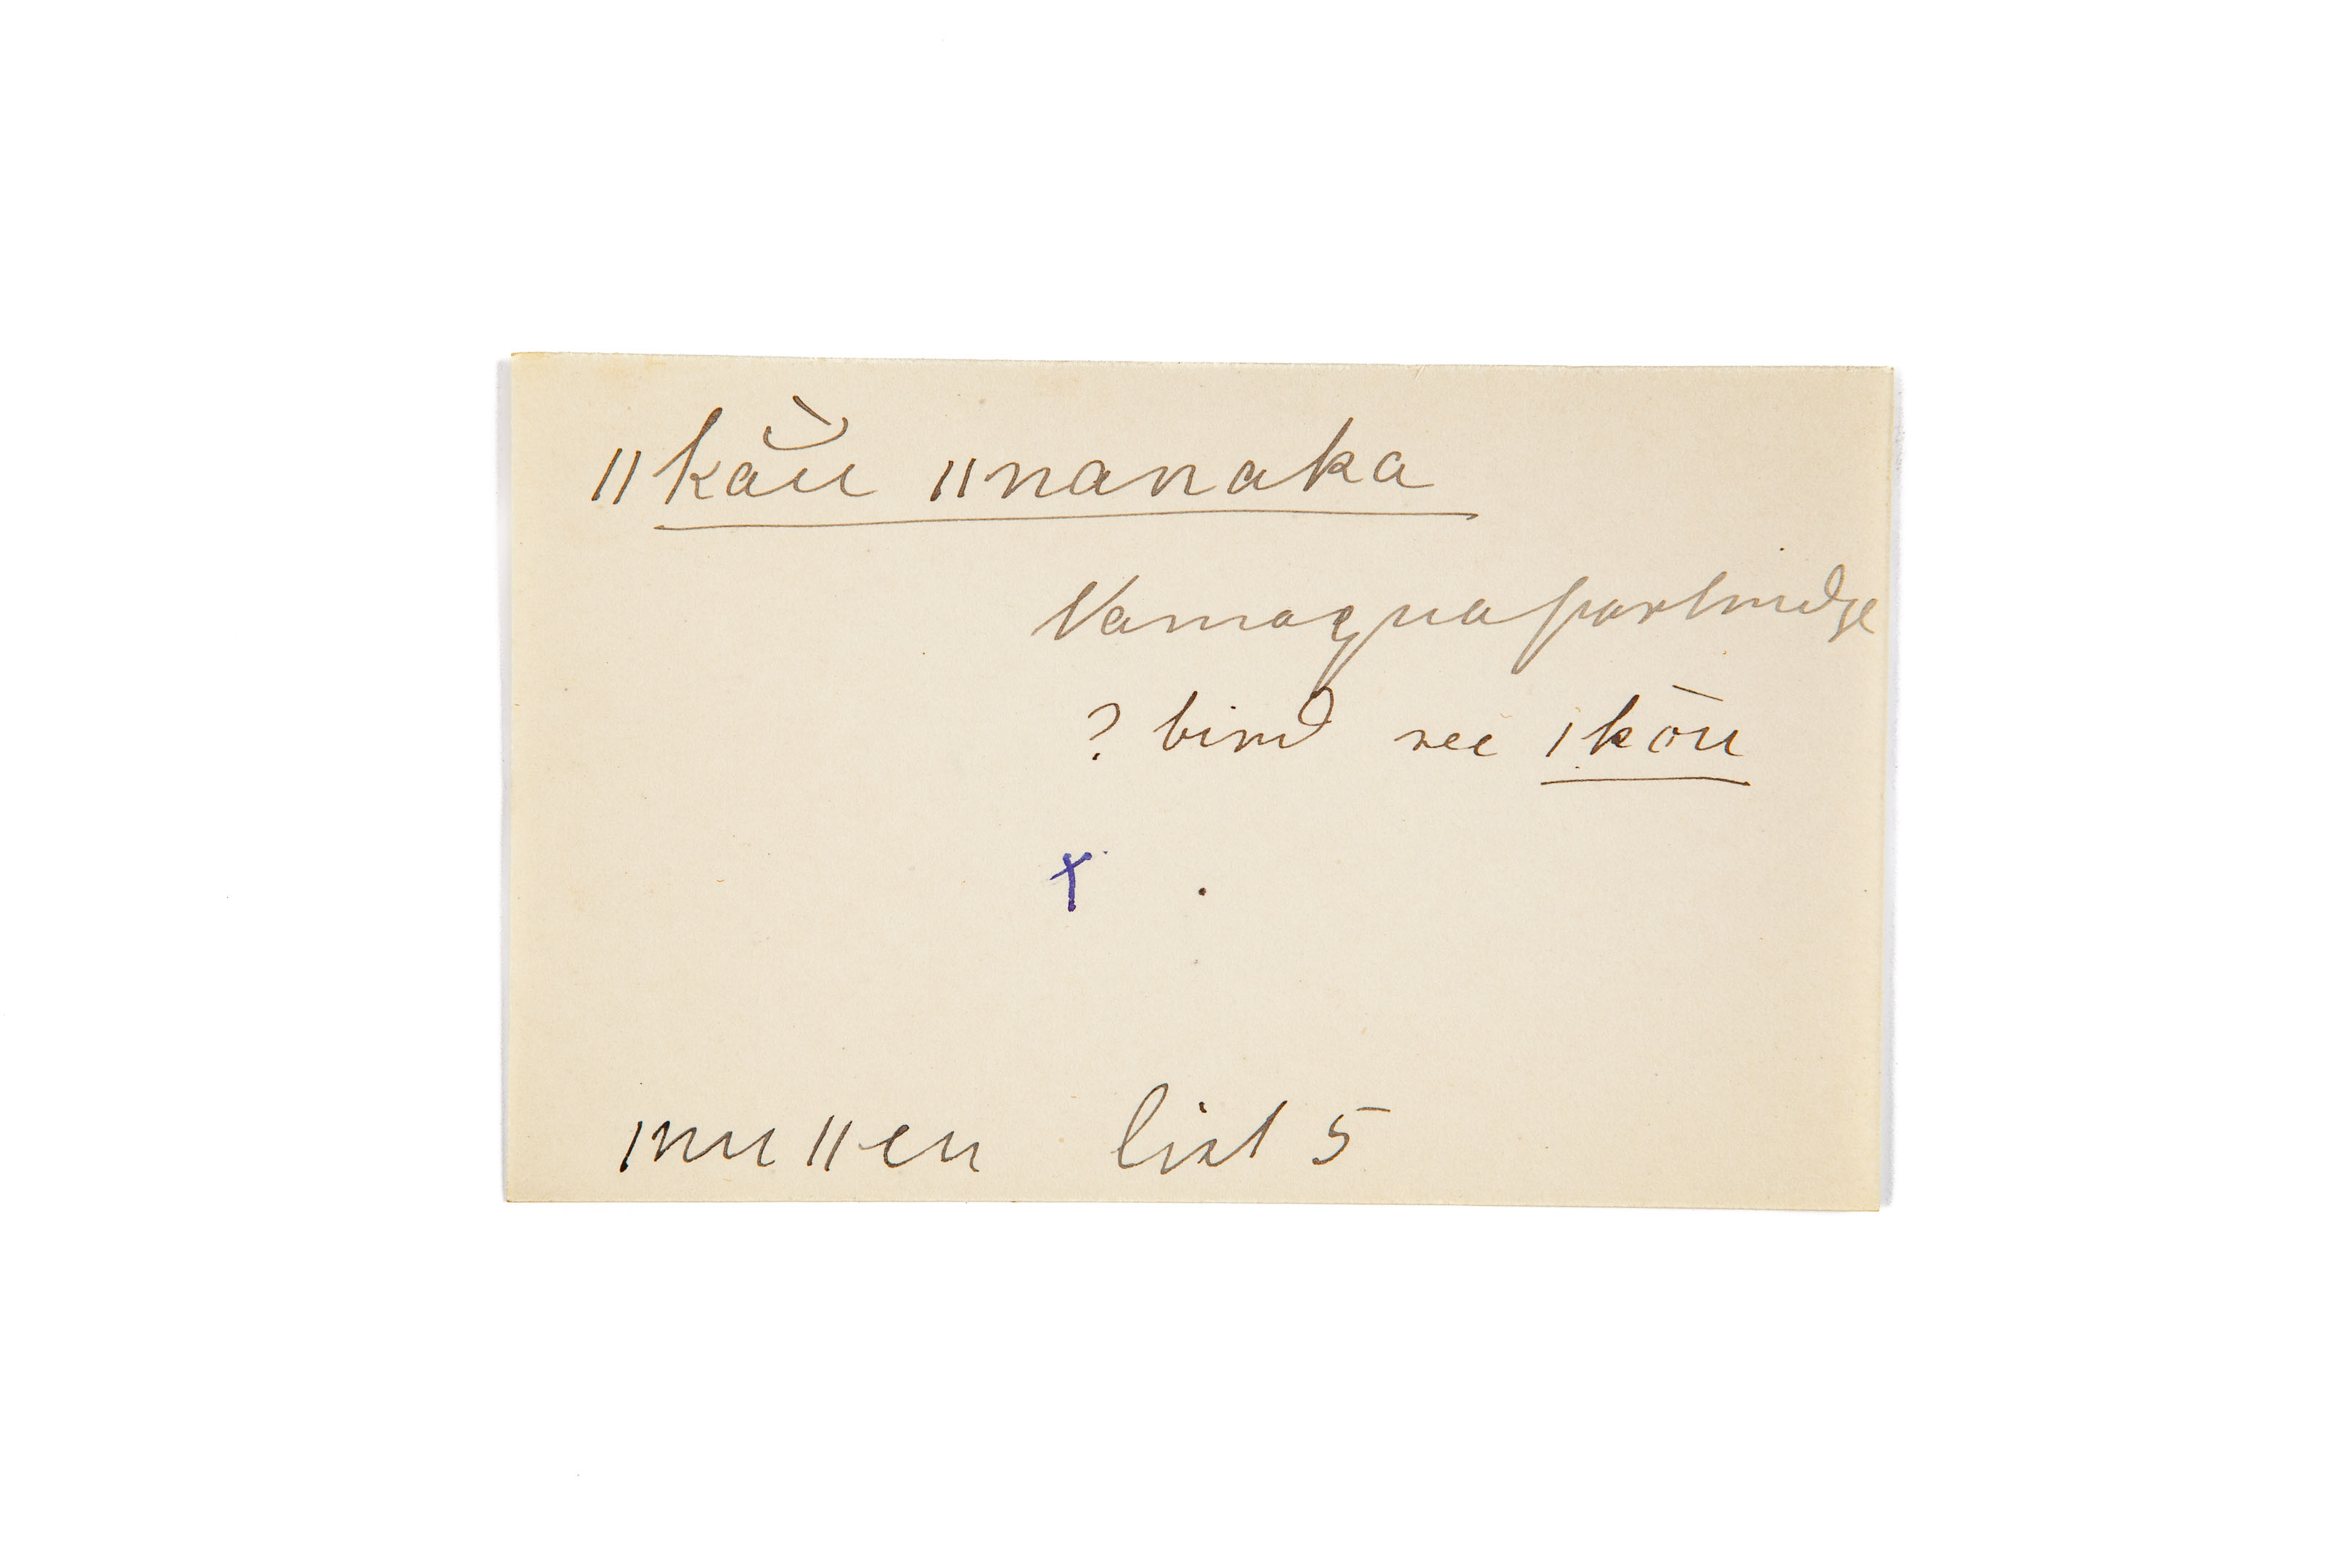 ǁkăù ǁnanaka
Namaqua partridge
? bird see ǀkōu
x
ǀnu ǁen list 5